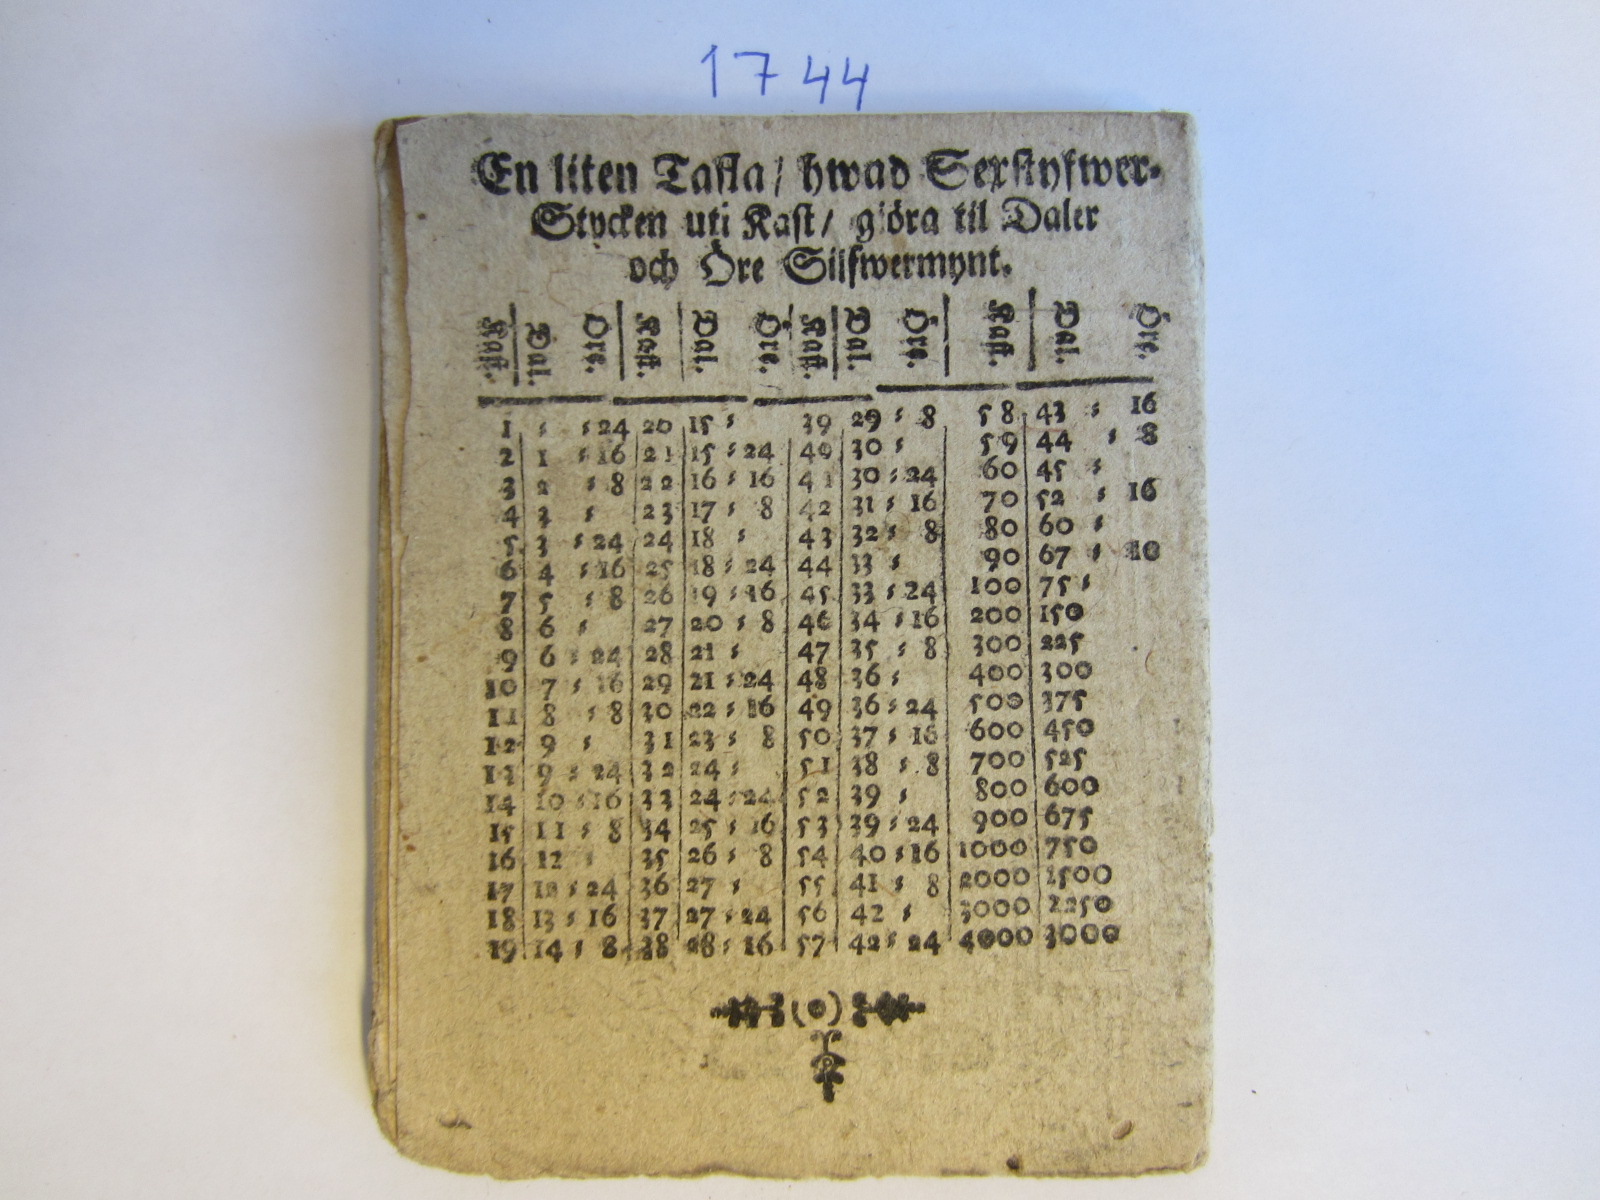 1744
En liten Tafla / hwad Sexstyfwer-
Stycken uti Kast / giöra til Daler
och Öre Silfwermynt.
Kast. Dal. Öre. Kast. Dal. Öre. Kast. Dal. Öre. Kast. Dal. Öre.
1 : : 24 20 15 : 39 29 : 8 58 43 : 16
2 1 : 16 21 15 : 24 40 30 : 59 44 : 8
3 2 : 8 22 16 : 16 41 30 : 24 60 45 :
4 3 : 23 17 : 8 42 31 : 16 70 52 : 16
5 3 : 24 24 18 : 43 32 : 8 80 60 :
6 4 : 16 25 18 : 24 44 33 : 90 67 : 10
7 5 : 8 26 19 : 16 45 33 : 24 100 75 :
8 6 : 27 20 : 8 46 34 : 16 200 150
9 6 : 24 28 21 : 47 35 : 8 300 225
10 7 : 16 29 21 : 24 48 36 : 400 300
11 8 : 8 30 22 : 16 49 36 : 24 500 375
12 9 : 31 23 : 8 50 37 : 16 600 450
13 9 : 24 32 24 : 51 38 : 8 700 525
14 10 : 16 33 24 : 24 52 39 : 800 600
15 11 : 8 34 25 : 16 53 39 : 24 900 675
16 12 : 35 26 : 8 54 40 : 16 1000 750
17 12 : 24 36 27 : 55 41 : 8 2000 1500
18 13 : 16 37 27 : 24 56 42 : 3000 2250
19 14 : 8 38 28 : 16 57 42 : 24 4000 3000